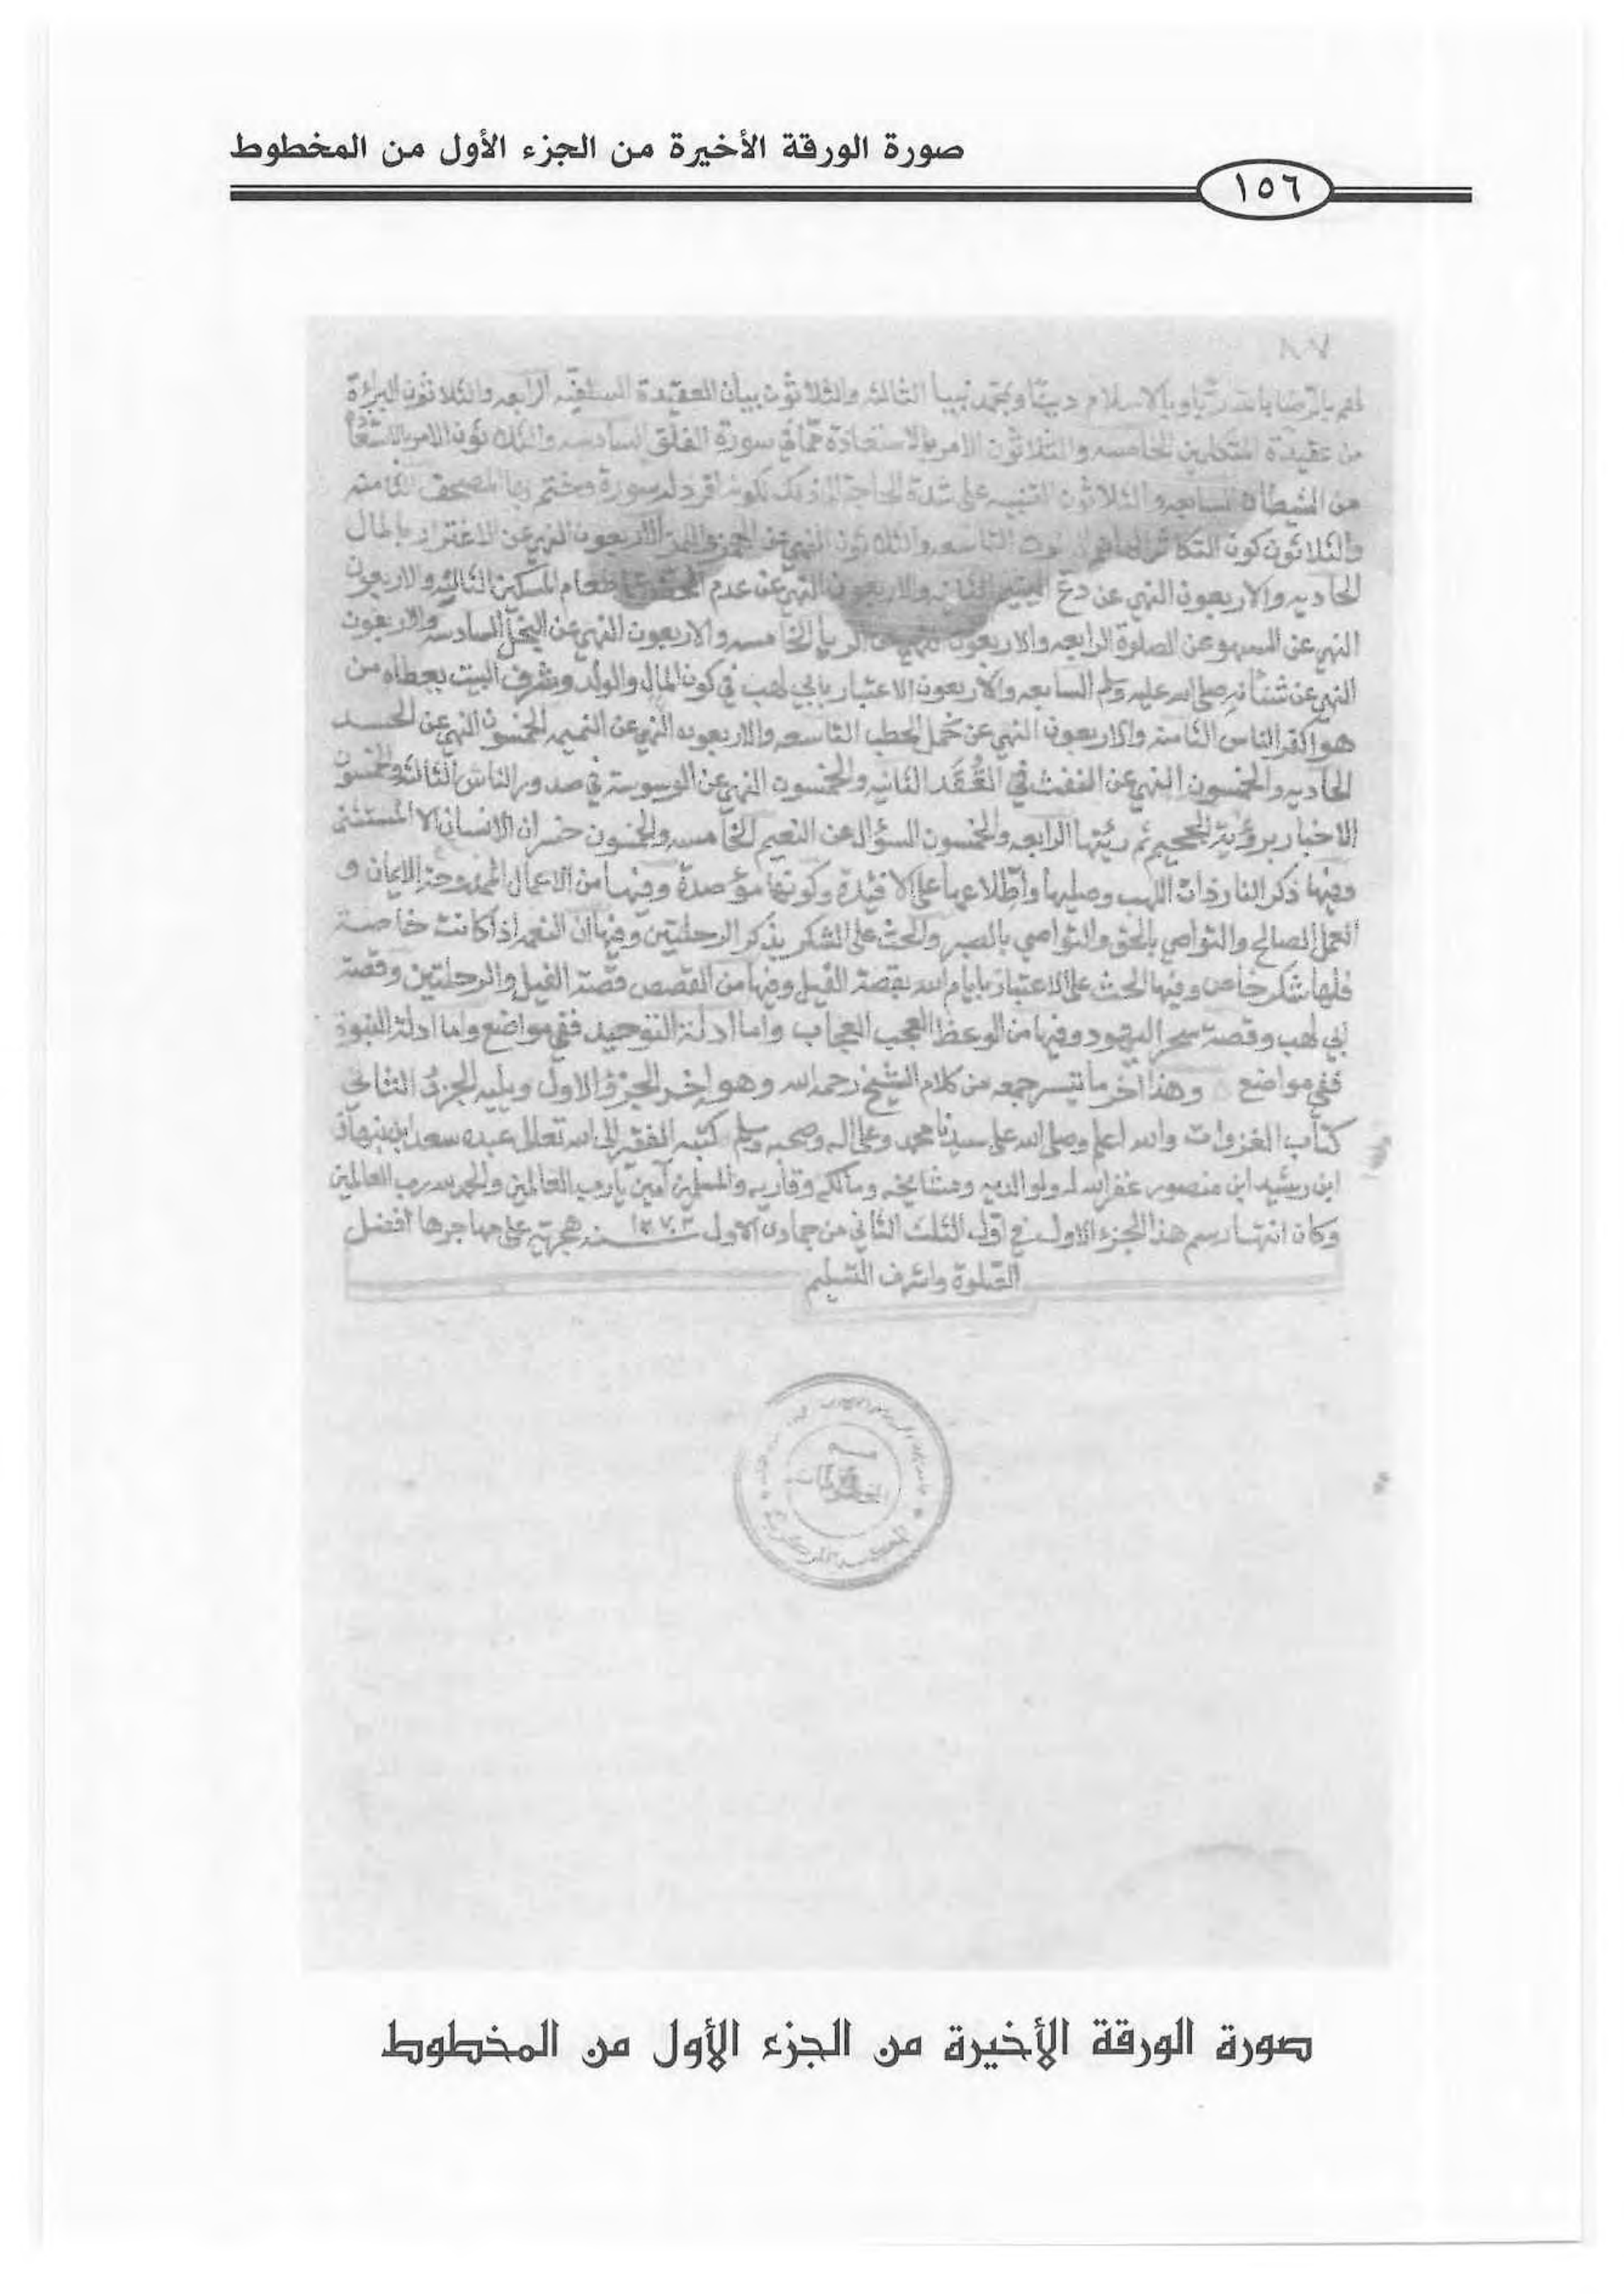 صورة الورقة الأخيرة من الجزء الأول من المخطوط
١٥٦
٨٧
بالرضا بالله ربًا وبالاسلام دينًا وبمحمد نبيا الثالثه والثلاثون بيان العقيدة السلفيه الرابعه والثلاثون البراءة
من عقيدة المتكلمين الخامسه والثلاثون الامر بالاستعاذة مما في سورة الفلق السادسه والثلاثون الامر بالاستعاذة
من الشيطان السابعه والثلاثون التنبيه على شدة الحاجة الى ذلك لكونه افرد له سورة وختم بها المصحف الثامنه
والثلاثون كون التكاثر التاسعه والثلاثون النهي عن الهمز واللمز الاربعون النهي عن الاغترار بالمال
الحاديه والاربعون النهي عن دع اليتيم الثانيه والاربعون النهي عن عدم الحض على طعام المسكين الثالثه والاربعون
النهي عن السهو عن الصلوة الرابعه والاربعون النهي عن الريا الخامسه والاربعون النهي عن البخل السادسه والاربعون
النهي عن شنأنه صلى الله عليه وسلم السابعه والاربعون الاعتبار بابي لهب في كون المال والولد وشرف البيت يعطاه من
هو اكفر الناس الثامنه والاربعون النهي عن حمل الحطب التاسعه والاربعون النهي عن النميمه الخمسون النهي عن الحسد
الحاديه والخمسون النهي عن النفث في العُقَد الثانيه والخمسون النهي عن الوسوسة في صدور الناس الثالثه والخمسون
الاخبار برؤية الجحيم ثم رئيتها الرابعه والخمسون السؤال عن النعيم الخامسه والخمسون خسران الانسان الا المستثنى
وفيها ذكر النار ذات اللهب وصليها واطلاعها على الافئدة وكونها مؤصدة وفيها من الاعمال الممدوحة الايمان و
العمل الصالح والتواصي بالحق والتواصي بالصبر والحث على الشكر بذكر الرحلتين وفيها ان النعمه اذا كانت خاصة
فلها شكر خاص وفيها الحث على الاعتبار بايام الله بقصة الفيل وفيها من القصص قصة الفيل والرحلتين وقصة
ابي لهب وقصة سحر اليهود وفيها من الوعظ العجب العجاب واما ادلة التوحيد ففي مواضع واما ادلة النبوة
ففي مواضع وهذا آخر ما تيسر جمعه من كلام الشيخ رحمه الله وهو اخر الجزؤ الاول ويليه الجزؤ الثاني
كتاب الغزوات والله اعلم وصلى الله على سيدنا محمد وعلى اله وصحبه وسلم كتبه الفقير الى الله تعالى عبده سعد ابن نبهان
ابن رشيد ابن منصور غفر الله له ولوالديه ومشايخه ومالكه وقاريه والمسلمين آمين يا رب العالمين والحمد لله رب العالمين
وكان انتها رسم هذا الجزء الاول في اول الثلث الثاني من جمادى الاول سنة هجرية على مهاجرها افضل
الصلوة واشرف التسليم
المخطوطات
المكتبة المركزية
صورة الورقة الأخيرة من الجزء الأول من المخطوط